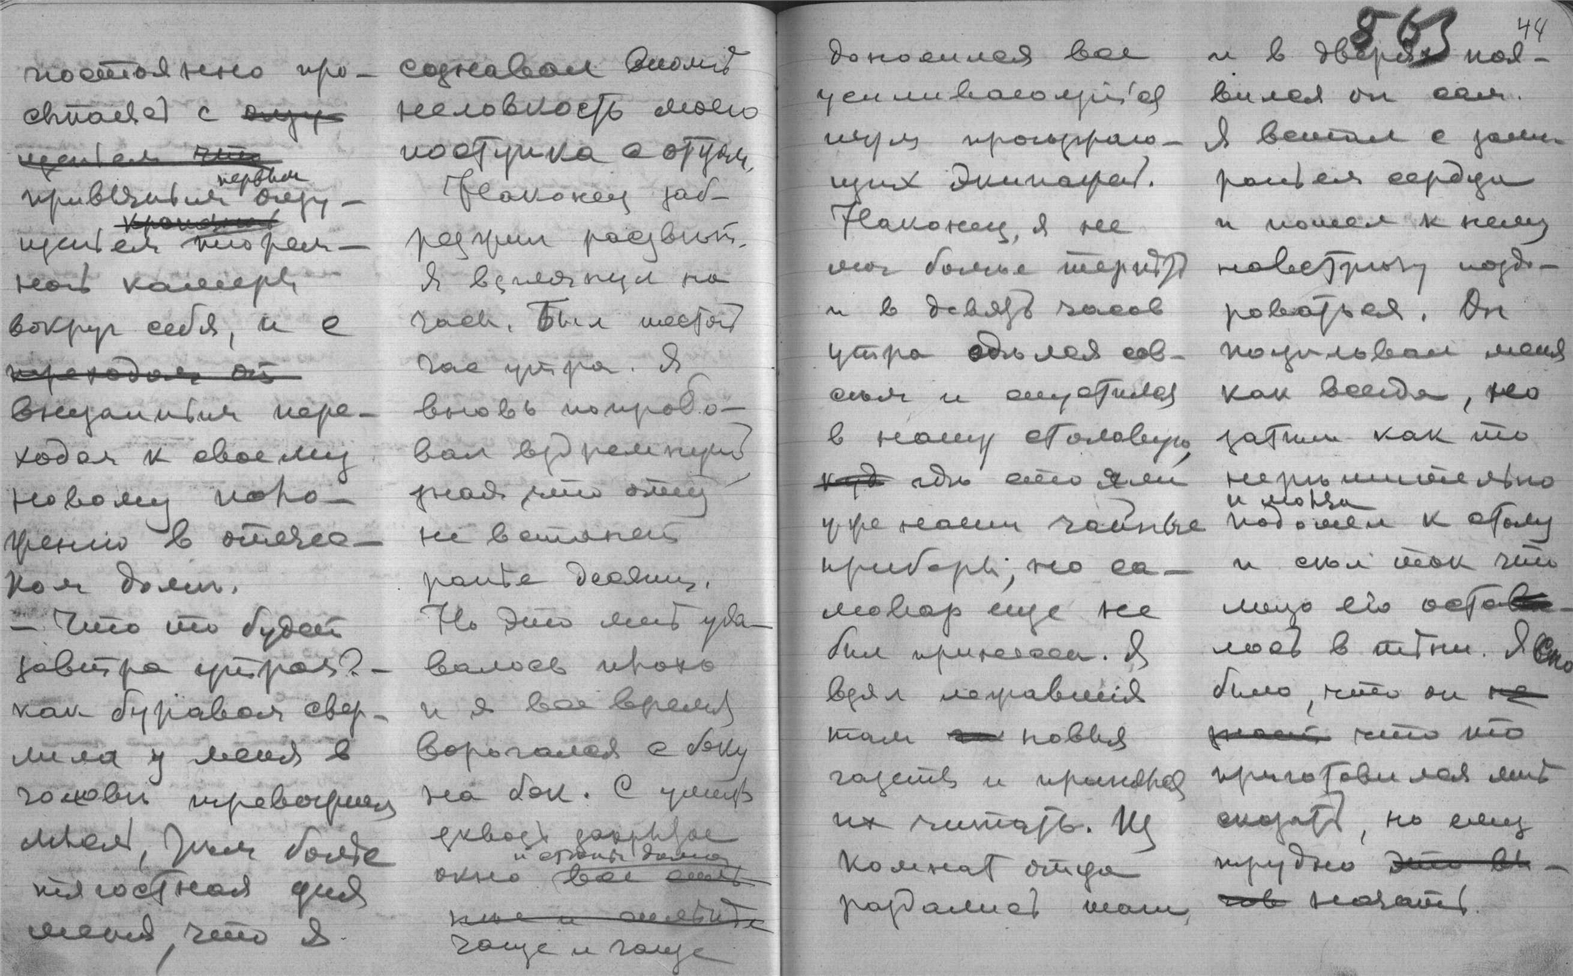 563
44
постоянно про-
сыпаясь съ ощу-
щеніем что
первым
привычным ощу-
кромешной
щеніем тюрем-
ной камеры
вокруг себя, и с
переходом от
внезапным пере-
ходом к своему
новому поло-
женію в отечес-
ком доме.
— Что то будет
завтра утром? —
как буравом свер-
лила у меня в
голове тревожная
мысль, тем более
тягостная для
меня, что я
сознавал всю
неловкость моего
поступка с отцом.
Наконец заб-
резжил разсвет.
Я взглянул на
часы. Был шестой
час утра. Я
вновь попробо-
вал вздремнуть,
зная, что отец
не встанет
ранее десяти.
Но это мне уда-
валось плохо
и я все время
ворочался с боку
на бок. С улицы
сквозь закрытое
и стены дома
окно все силь-
нее и сильнее
чаще и чаще
доносился все
усиливающійся
шум проезжаю-
щих экипажей.
Наконец, я не
мог больше терпеть
и в девять часов
утра оделся сов-
сем и спустился
в нашу столовую,
куда где стояли
уже наши чайные
приборы, но са-
мовар еще не
был принесен. Я
взял лежавшія
там новыя
газеты и принялся
их читать. Из
комнат отца
раздались шаги,
и в дверях поя-
вился он сам.
Я встал с зами-
раніем сердца
и пошел к нему
навстречу здо-
роваться. Он
поцеловал меня
как всегда, но
затем как то
нерешительно
и молча
подошел к столу
и сел так что
лицо его остава-
лось в тени. Ясно
было, что он не
знает что то
приготовился мне
сказать, но ему
трудно это вы-
начать.